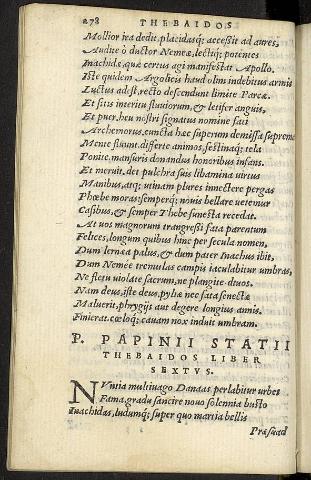 278 THEBAIDOS
Mollior ira dedit, placidasq; accessit ad aures,
Audite ô ductor Nemeæ, lectiq; potentes
Inachidæ, quæ certus agi manifestat Apollo.
Iste quidem Argolicis haud olim indebitus armis
Luctus adest, recto descendunt limite Parcæ.
Et sitis interitu fluuiorum, & letifer anguis,
Et puer, heu nostri signatus nomine fati
Archemorus, cuncta hæc superum demissa suprema
Mente fluunt. differte animos, festinaq; tela
Ponite. mansuris donandus honoribus infans.
Et meruit. det pulchra suis libamina uirtus
Manibus, atq; utinam plures innectere pergas
Phœbe moras: semperq; nouis bellare uetemur
Casibus, & semper Thebe funesta recedat.
At uos magnorum transgressi fata parentum
Felices, longum quibus hinc per secula nomen,
Dum Lernæa palus, & dum pater Inachus ibit,
Dum Nemee tremulas campis iaculabitur umbras,
Ne fletu uiolate sacrum, ne plangite diuos.
Nam deus, iste deus, pyliæ nec fata senectæ
Maluerit, phrygijs aut degere longius annis.
Finierat. cœloq; cauam nox induit umbram.
P. PAPINII STATII
THEBAIDOS LIBER
SEXTVS.
NVntia multiuago Danaas perlabitur urbes
Fama, gradu sancire nouo solennia busto
Inachidas, ludumq; super quo martia bellis
Præsuad